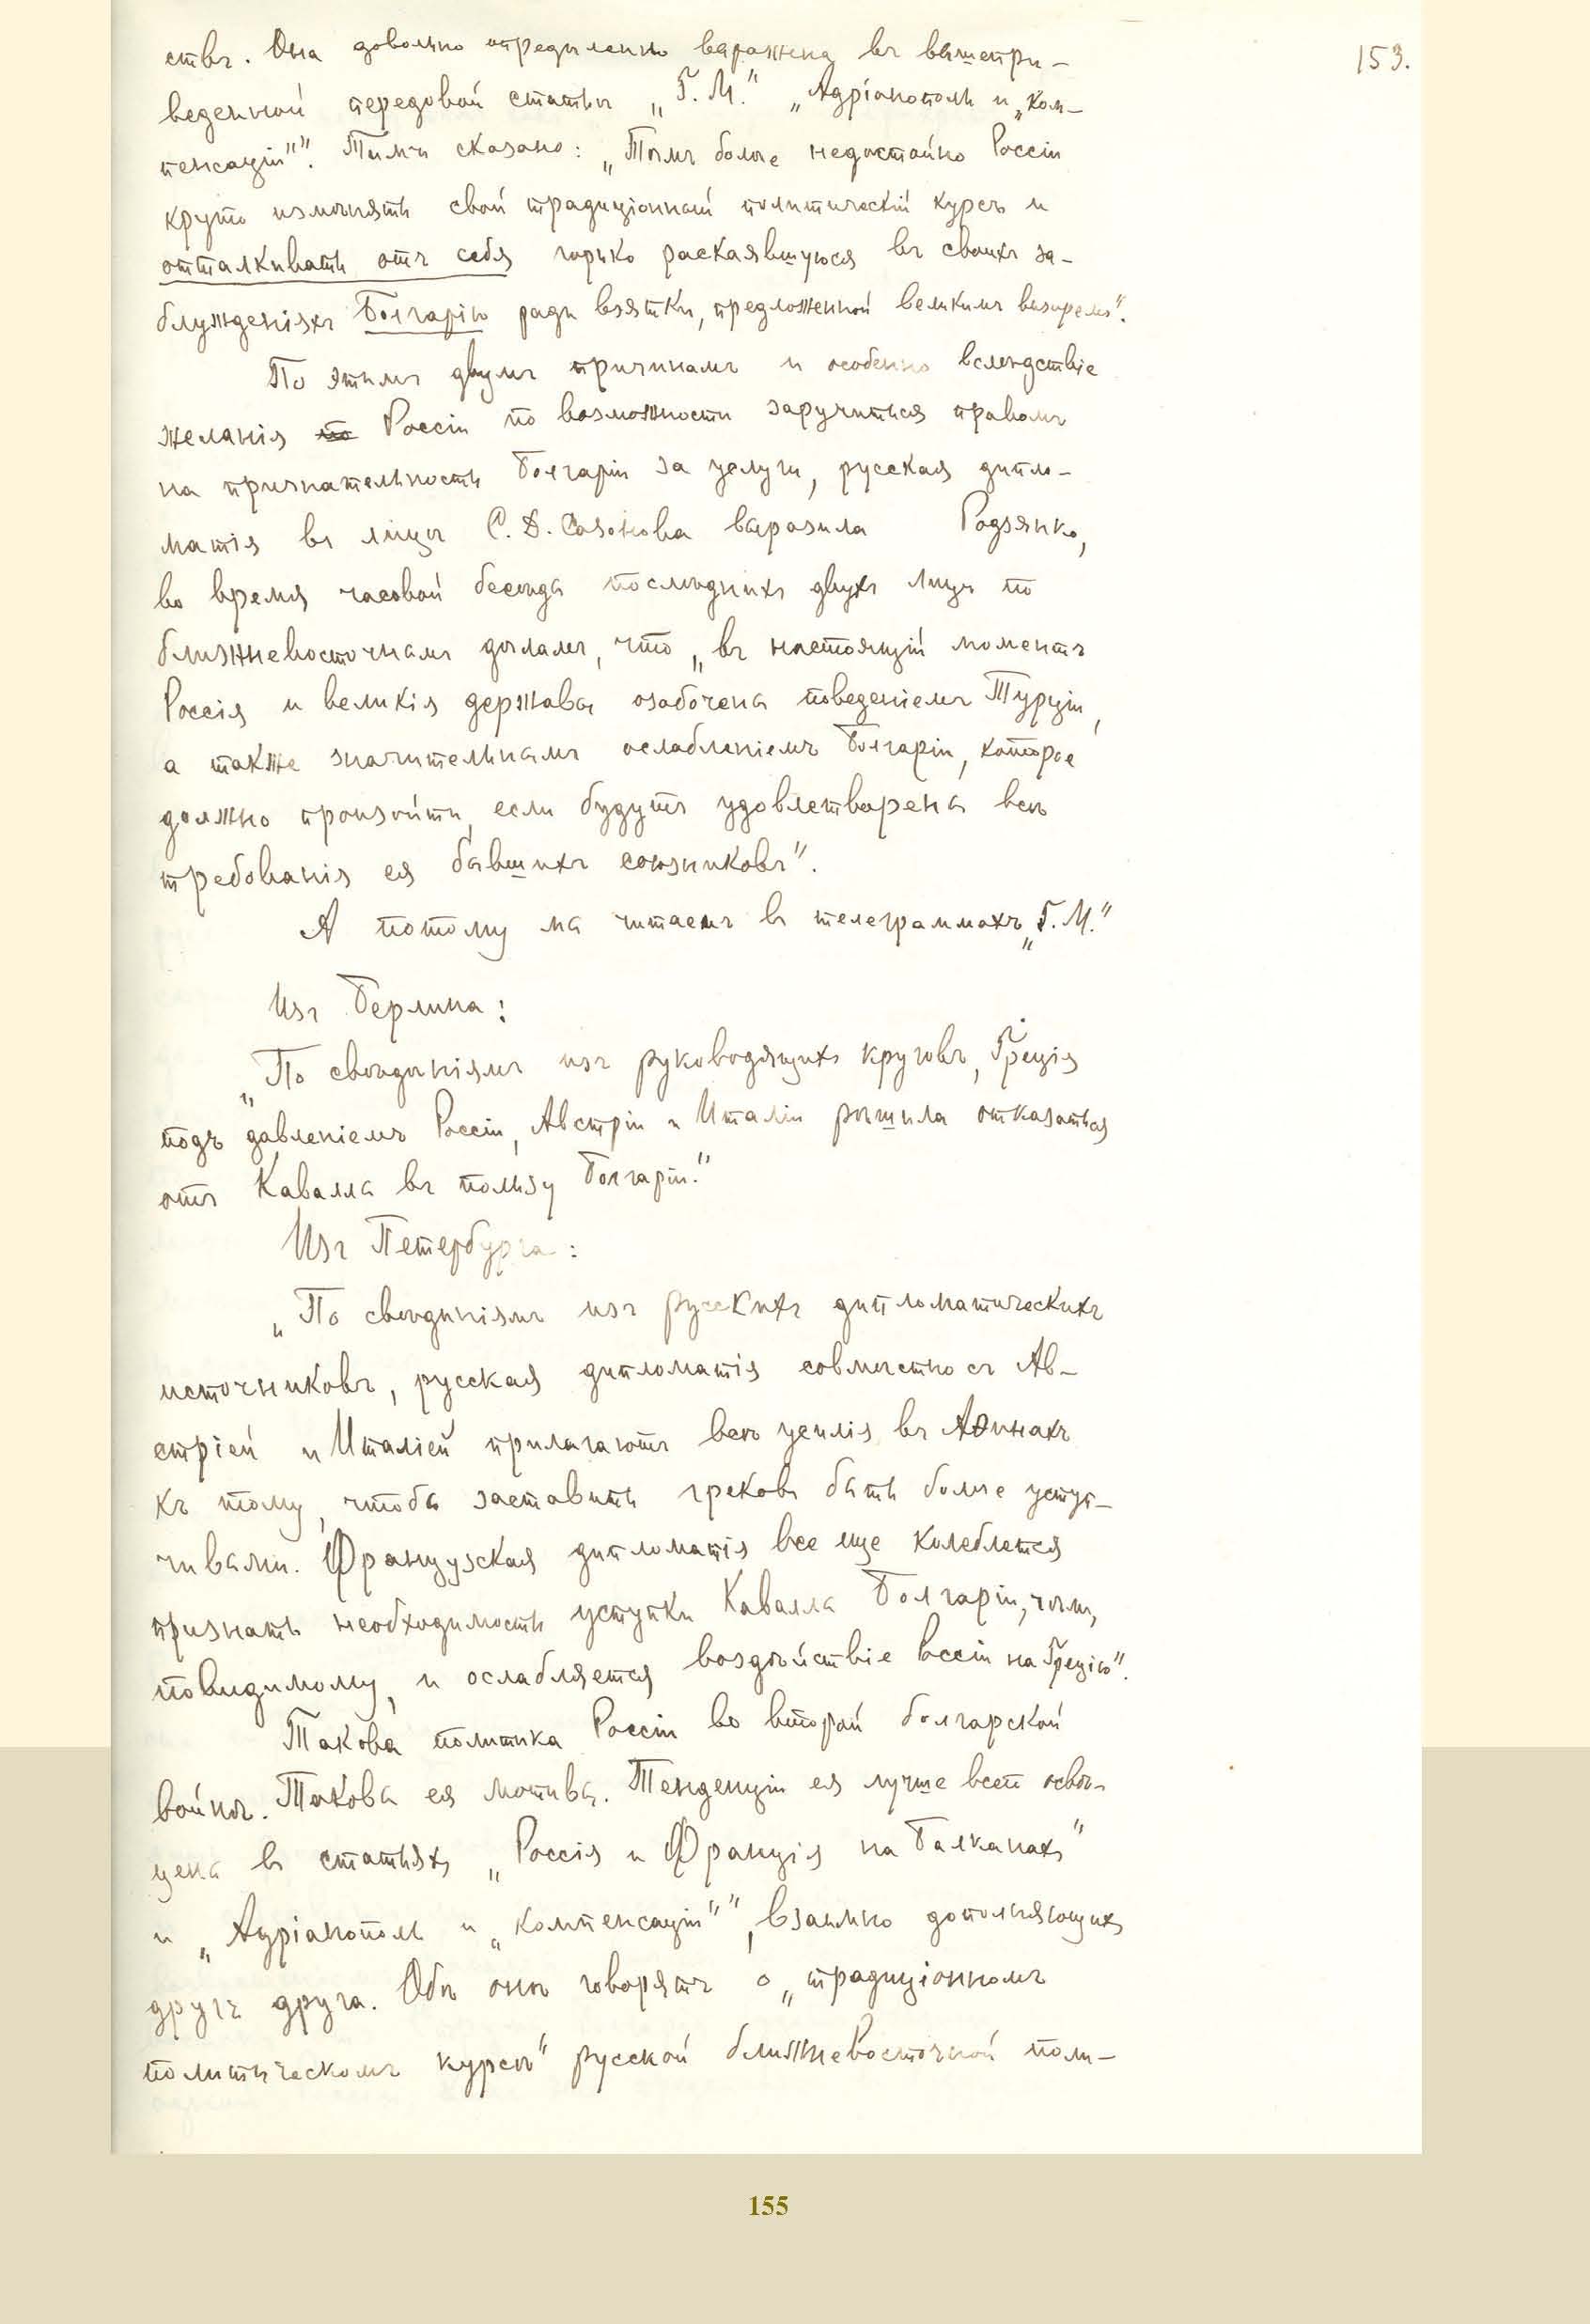 153.
ствъ. Она довольно опредѣленно выражена въ вышепри-
веденной передовой статьѣ „Г. М." „Адріанополь и „ком-
пенсаціи"". Тамъ сказано: „Тѣмъ болѣе недостойно Россіи
круто измѣнять свой традиціонный политическій курсъ и
отталкивать отъ себя горько раскаявшуюся въ своихъ за-
блужденіяхъ Болгарію ради взятки, предложенной великимъ визиремъ".
По этимъ двумъ причинамъ и особенно вслѣдствіе
желанія Россіи по возможности заручиться правомъ
на признательность Болгаріи за услуги, русская дипло-
матія въ лицѣ С. Д. Сазонова выразила Родзянко,
во время часовой бесѣды послѣднихъ двухъ лицъ по
ближневосточнымъ дѣламъ, что „въ настоящій моментъ
Россія и великія державы озабочены поведеніемъ Турціи,
а также значительнымъ ослабленіемъ Болгаріи, которое
должно произойти, если будутъ удовлетворены всѣ
требованія ея бывшихъ союзниковъ".
А потому мы читаемъ въ телеграммахъ „Г. М."
Изъ Берлина:
„По свѣдѣніямъ изъ руководящихъ круговъ, Греція
подъ давленіемъ Россіи, Австріи и Италіи рѣшила отказаться
отъ Кавалла въ пользу Болгаріи."
Изъ Петербурга:
„По свѣдѣніямъ изъ русскихъ дипломатическихъ
источниковъ, русская дипломатія совмѣстно съ Ав-
стріей и Италіей прилагаютъ всѣ усилія въ Аѳинахъ
къ тому, чтобы заставить грековъ быть болѣе уступ-
чивыми. Французская дипломатія все еще колеблется
признать необходимость уступки Кавалла Болгаріи, чѣмъ,
повидимому, и ослабляется воздѣйствіе Россіи на Грецію".
Такова политика Россіи во второй болгарской
войнѣ. Таковы ея мотивы. Тенденціи ея лучше всего освѣ-
щены въ статьяхъ „Россія и Франція на Балканахъ"
и „Адріанополь и „компенсаціи"", взаимно дополняющихъ
другъ друга. Обѣ онѣ говорятъ о „традиціонномъ
политическомъ курсѣ" русской ближневосточной поли-
155